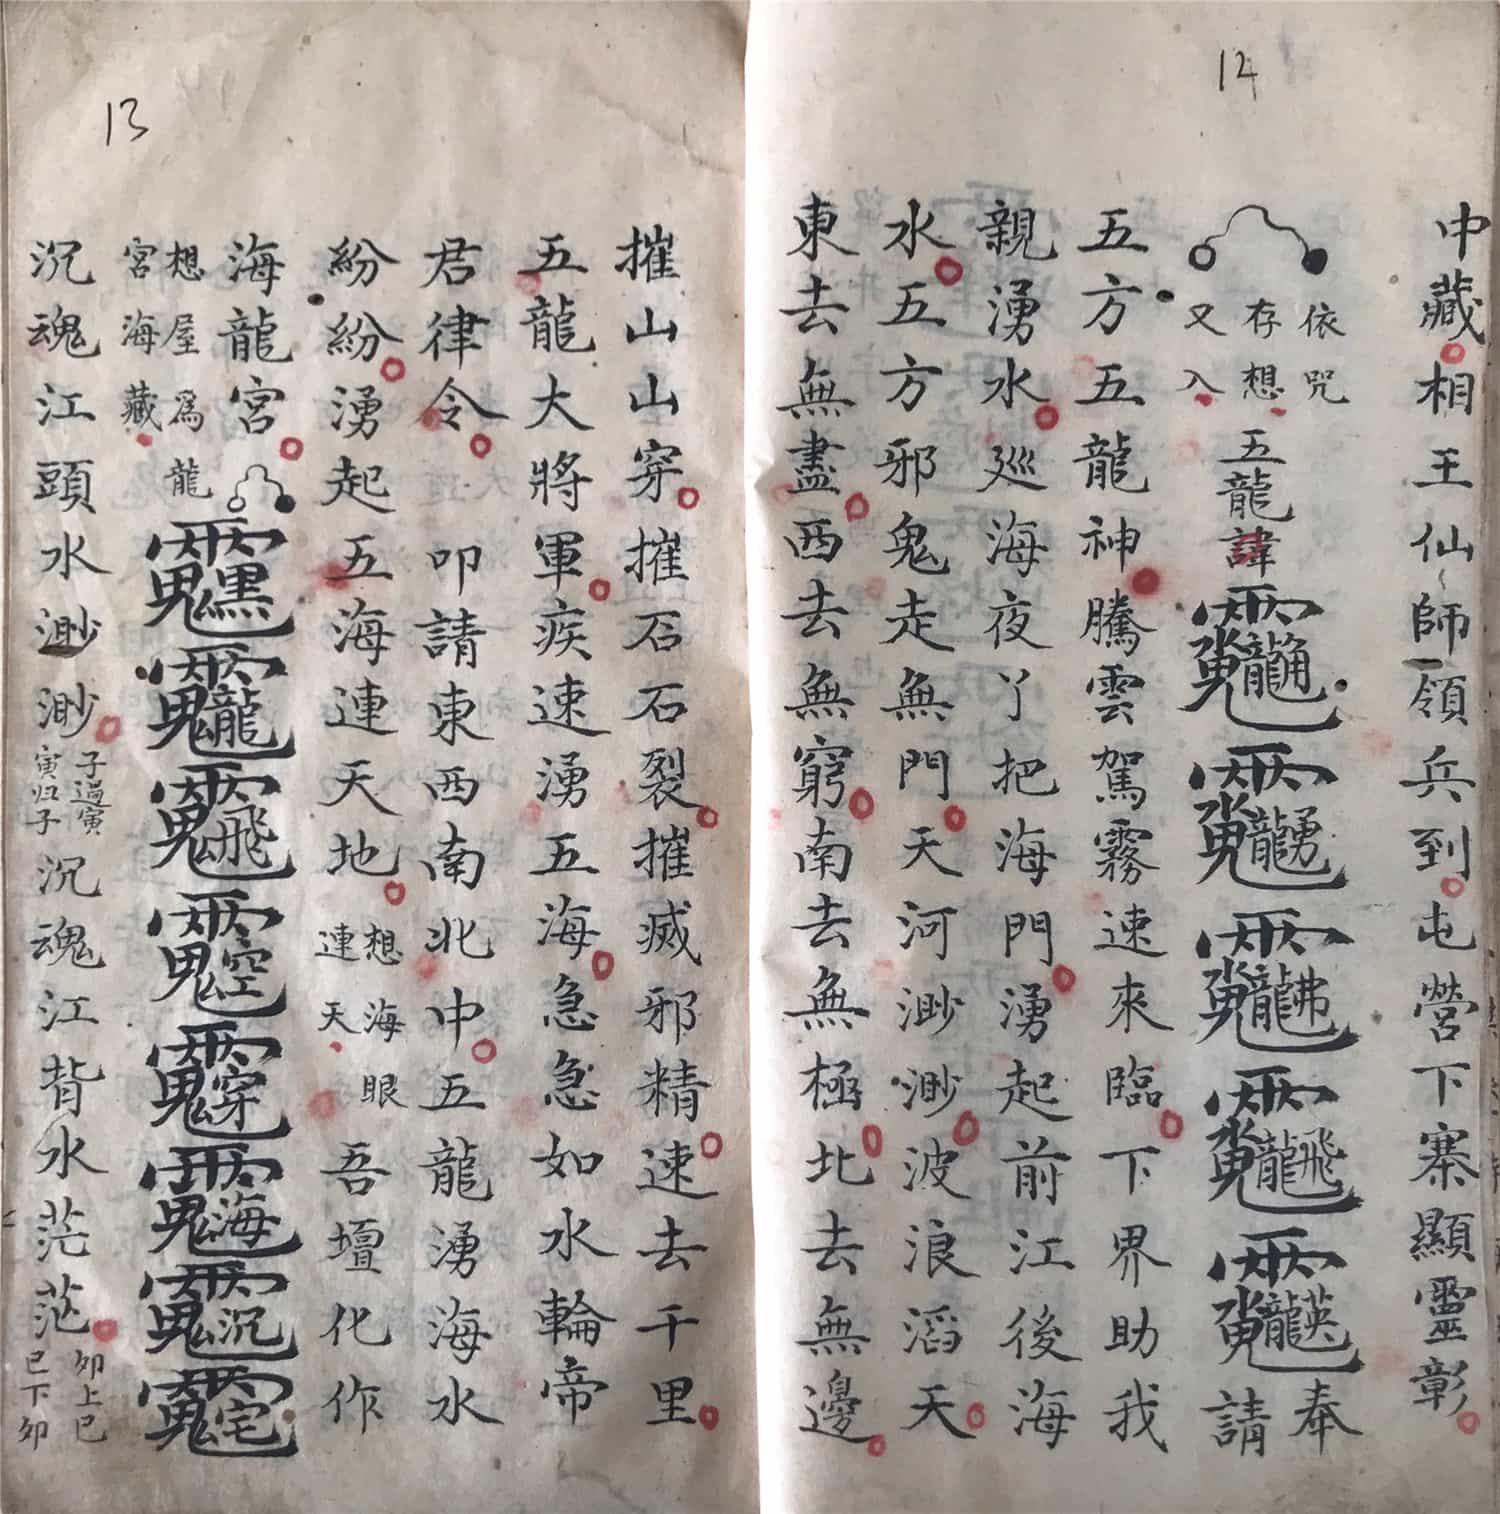 12
中藏相王仙師領兵到屯營下寨顯靈彰
依咒
存想
又入
五龍諱
奉請
五方五龍神騰雲駕霧速來臨下界助我
親湧水巡海夜丫把海門湧起前江後海
水五方邪鬼走無門天河渺渺波浪滔天
東去無盡西去無窮南去無極北去無邊
13
摧山山穿摧石石裂摧滅邪精速去千里
五龍大將軍疾速湧五海急急如水輪帝
君律令叩請東西南北中五龍湧海水
紛紛湧起五海連天地
想海眼
連天
吾壇化作
海龍宮
想屋為龍
宮海藏
沉魂江頭水渺渺
子過寅
寅归子
沉魂江背水茫茫
卯上巳
巳下卯